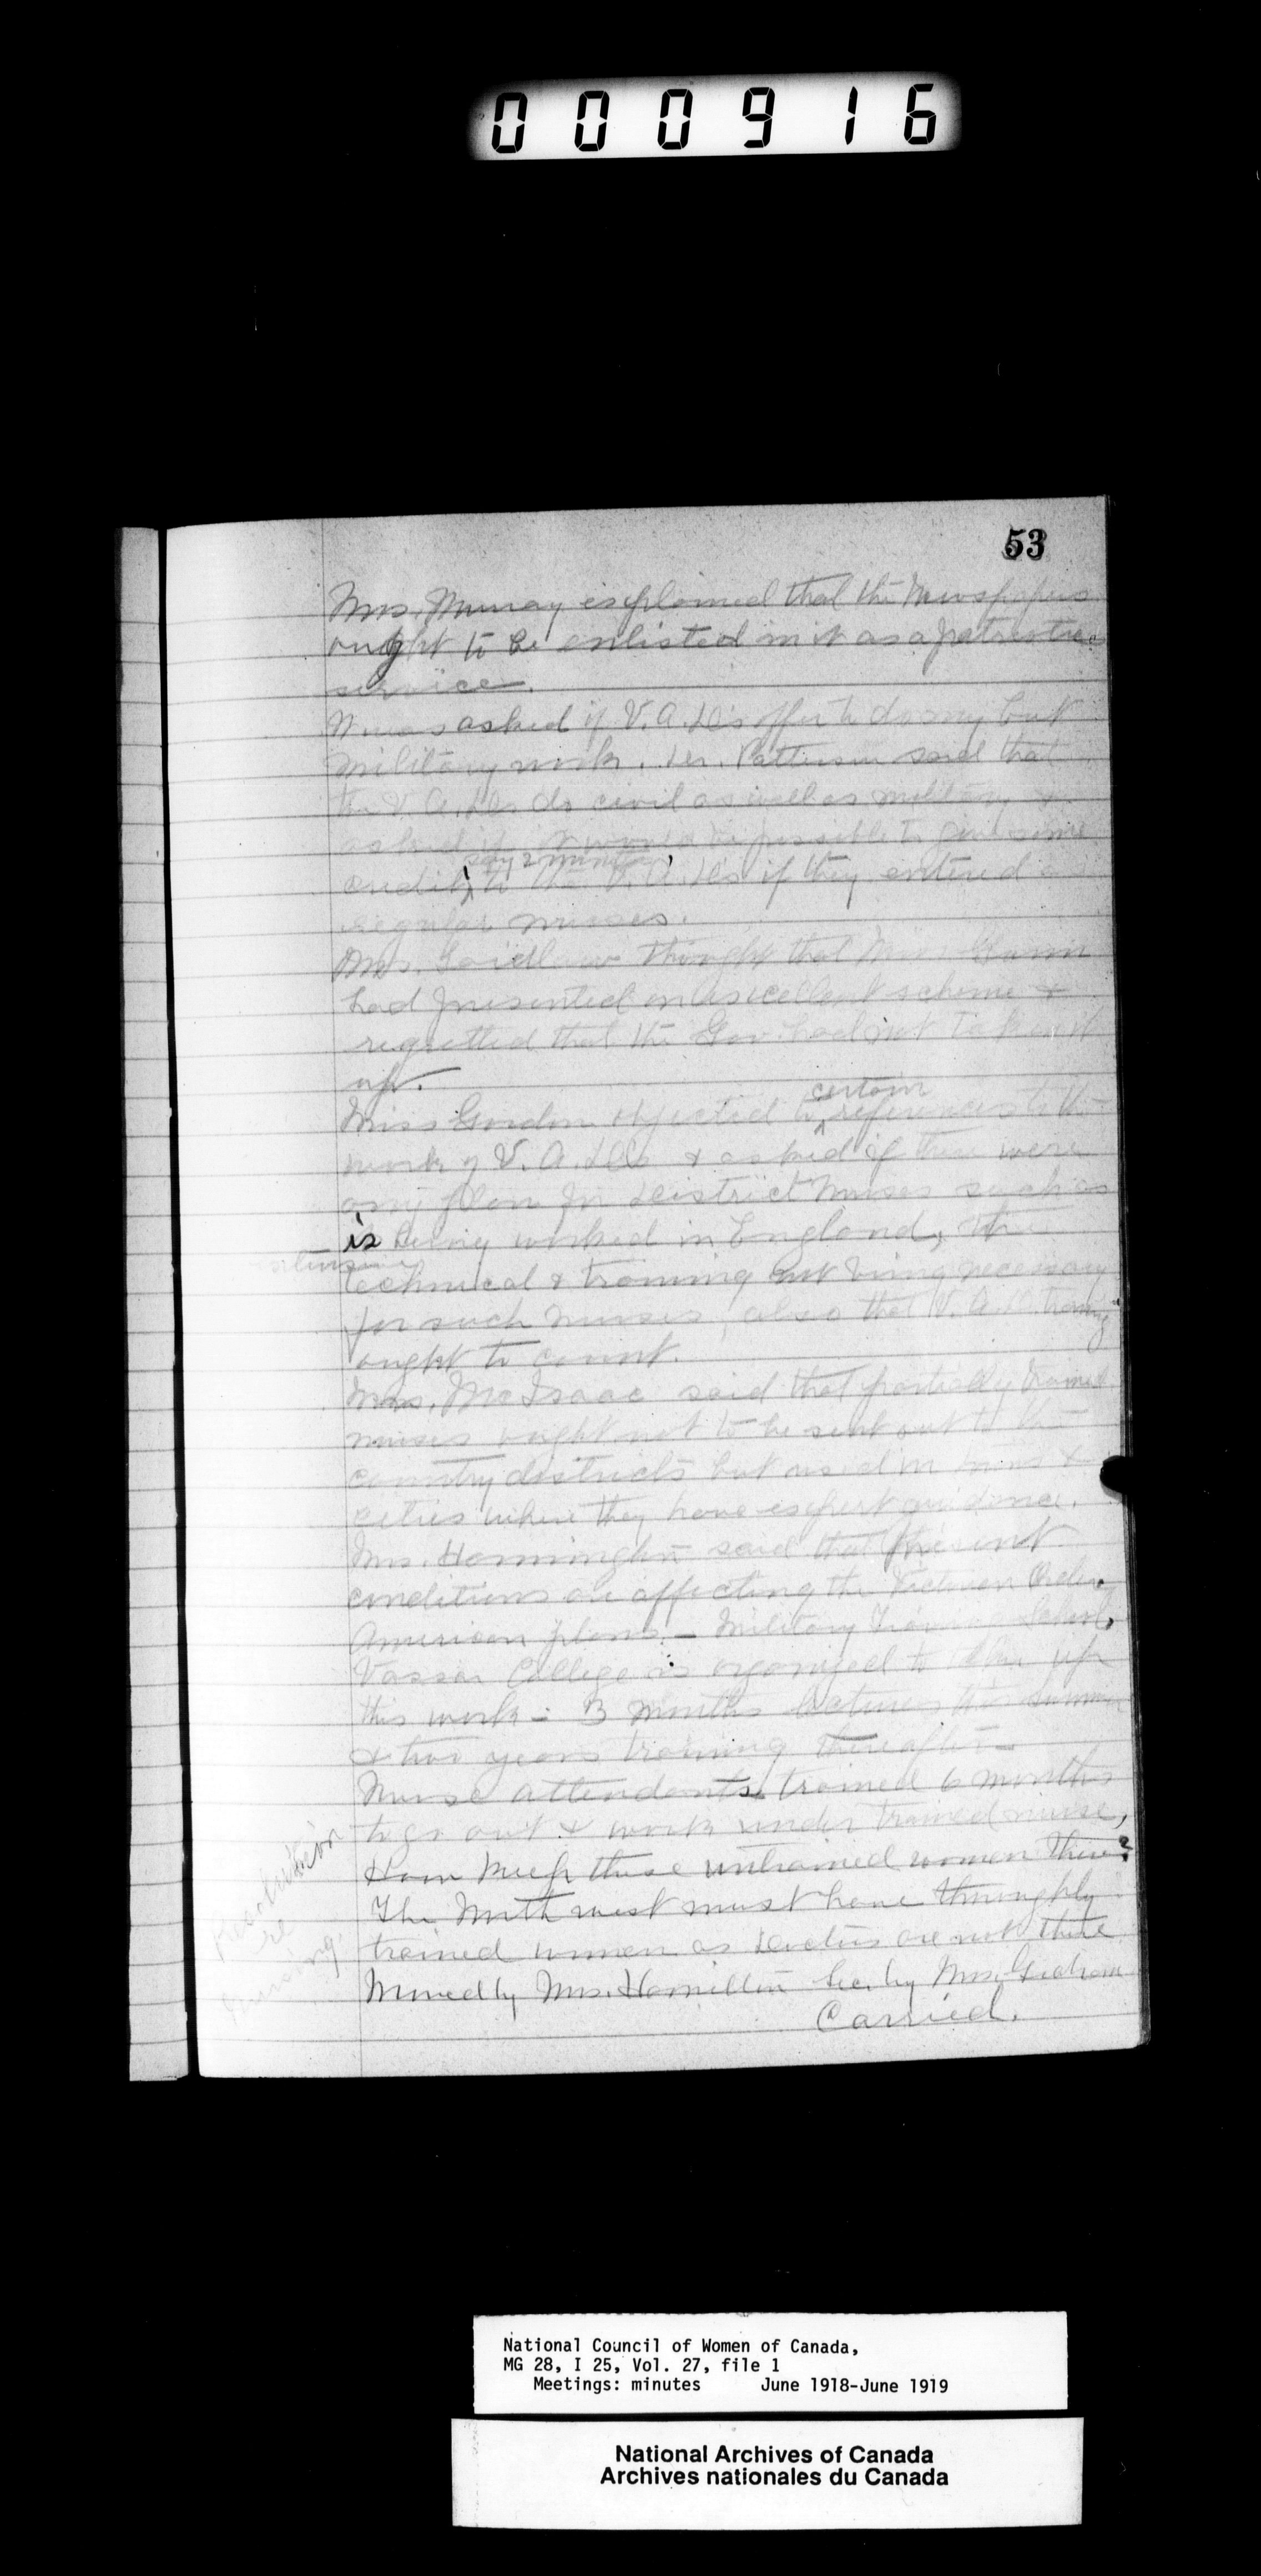 000916
53
Mrs. Murray explained that the Newspapers
ought to be enlisted in it as a patriotic
service.
It was asked if V.A.D's offer to do any but
military work. Dr. Patterson said that
the V.A.Ds do civil as well as military &
asked if it would be possible to give some
say 2 months
credit, to the V.A.D's if they entered as
regular nurses.
Mrs. Laidlaw thought that Miss Gunn
had presented an excellent scheme &
regretted that the Gov. had not taken it
up.
certain
Miss Gordon objected to references to the
work of V.A.Ds & asked if there were
any plan for District Nurses such as
is being worked in England, the
technical & training not being necessary
for such nurses, also that V.A.D. training
ought to count.
Mrs. McIsaac said that partially trained
nurses ought not to be sent out to the
country districts but used in towns &
cities where they have expert guidance.
Mrs. Hannington said that present
conditions are affecting the Victorian Order,
American plans – Military Training School,
Vassar College is organized to take up
this work – 3 months lectures this summer
& two years training thereafter –
Nurse attendants trained 6 months
to go out & work under trained nurse,
How keep these untrained women there?
The North west must have thoroughly
trained women as Doctors are not there
Resolution
re
Nursing.
Moved by Mrs. Hamilton Sec. by Mrs. Graham
Carried.
National Council of Women of Canada,
MG 28, I 25, Vol. 27, file 1
Meetings: minutes June 1918-June 1919
National Archives of Canada
Archives nationales du Canada